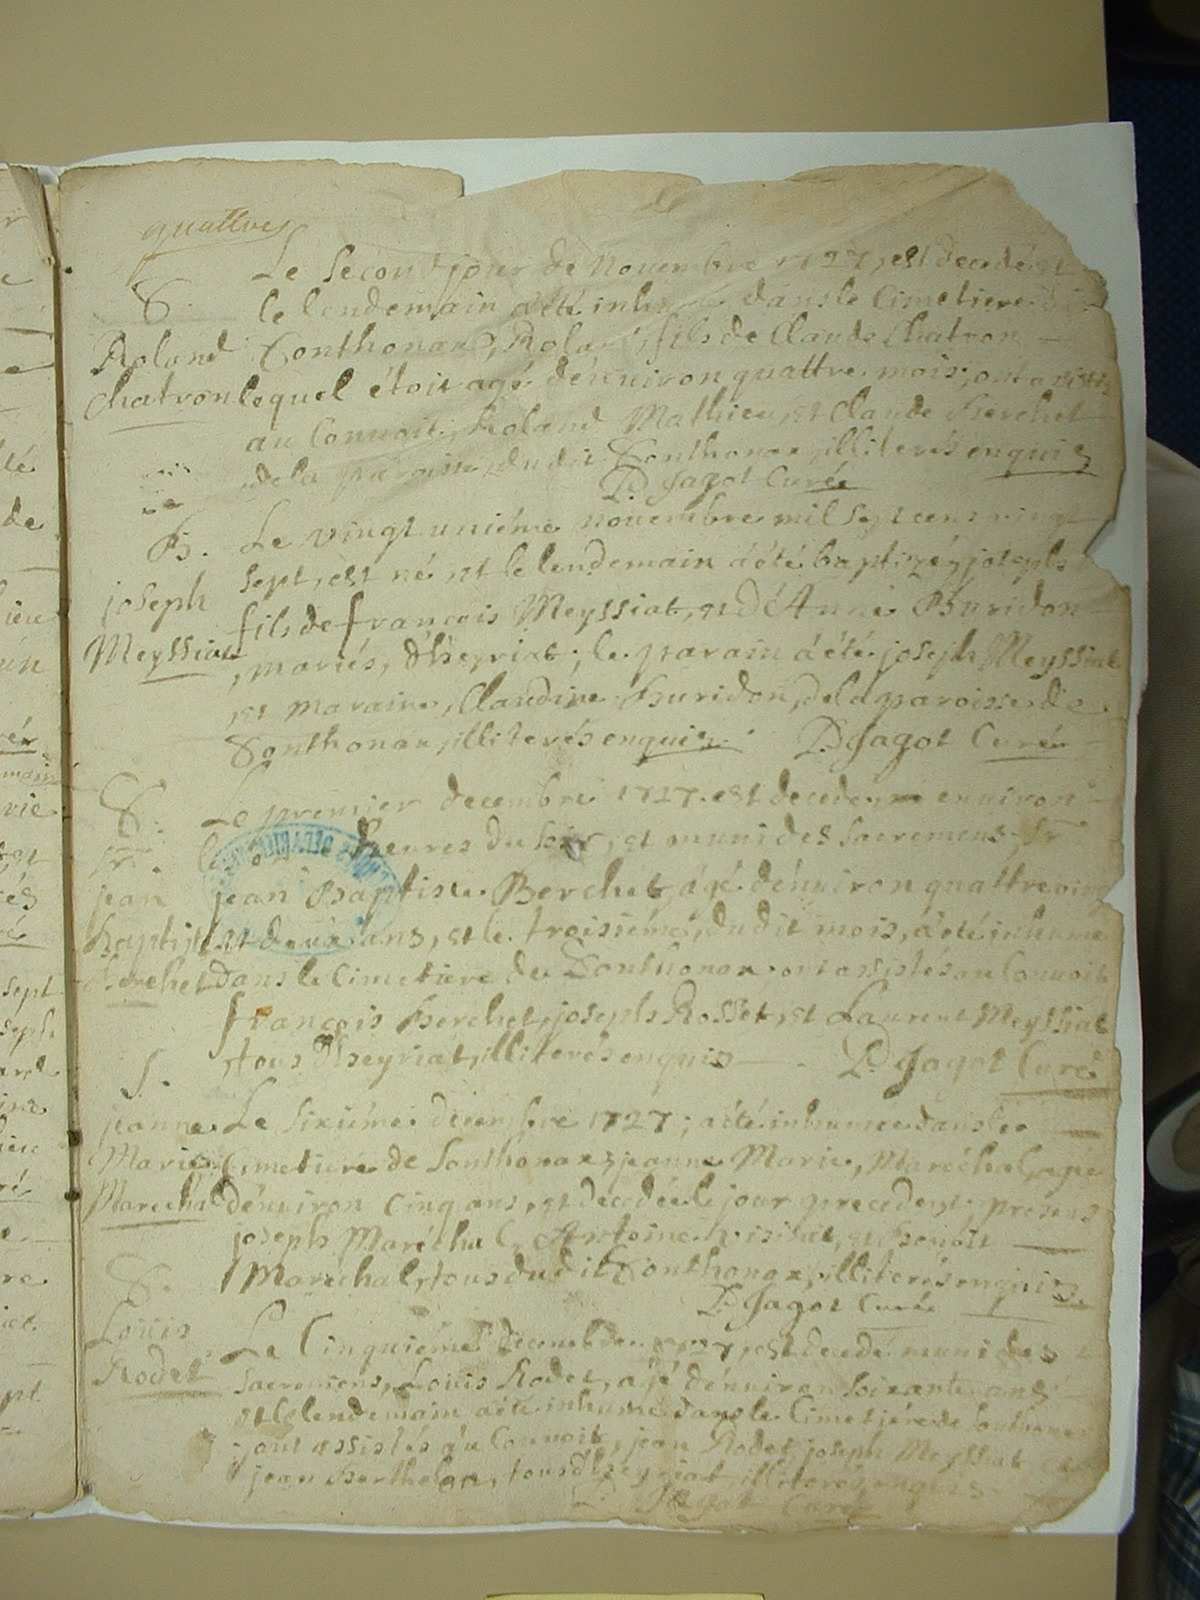 quattres
Le second jour de Novembre 1727, est decedé et
S. le lendemain a été inhumé dans le Cimetiere de
Roland Sonthonax, Roland, fils de Claude Chatron
Chatron lequel étoit agé d'énuiron quattre mois, ont assisté
au Conuoit, Roland Mathieu, et Claude Berchet
de la paroisse dudit Sonthonax, illiterés enquis
D. Jagot Curée
B. Le vingt uniéme novembre mil sept cens vingt
joseph sept, est né, et le lendemain a été baptizé, joseph
Meyssiat fils de françois Meyssiat, et d'Anne Buridon
mariés, d'heyriat; le parain a été joseph Meyssiat
et maraine, Claudine Buridon, de la paroisse de
Sonthonax, illiterés enquis. D. Jagot Curée
S. Le premier decembre 1727. est decedé enuiron
Sr. les heures du soir, et muni des sacremens, Sr
jean jean Baptiste Berchet, agé d'énuiron quattre vingt
baptiste et deux ans, et le troisiéme, dudit mois, a été inhumé
Berchet dans le Cimetiere de Sonthonax, ont assistés au Conuoit
françois Berchet, joseph Rosset, et Laurent Meyssiat
tous d'heyriat, illiterés enquis D. Jagot Curé
S.
jeanne Le sixiéme decembre 1727; a été inhumée dans le
Marie Cimetiere de Sonthonax, jeanne Marie, Maréchal, agée
Maréchal d'énuiron Cinq ans, et decedée le jour precedent; presens
joseph Maréchal, Antoine et Benoit
S. Maréchal, tous dudit Sonthonax, illiterés enquis
D. Jagot Curée
Louis Le Cinquiéme decembre 1727, est decedé muni des
Rodet sacremens, Louis Rodet, agé d'énuiron soixante ans
et le lendemain a été inhumé dans le Cimetiére de Sonthonax
ont assistés au Conuoit, jean Rodet, joseph Meyssiat
jean Berthelon, tous d'heyriat, illiterés enquis
D. Jagot Curé